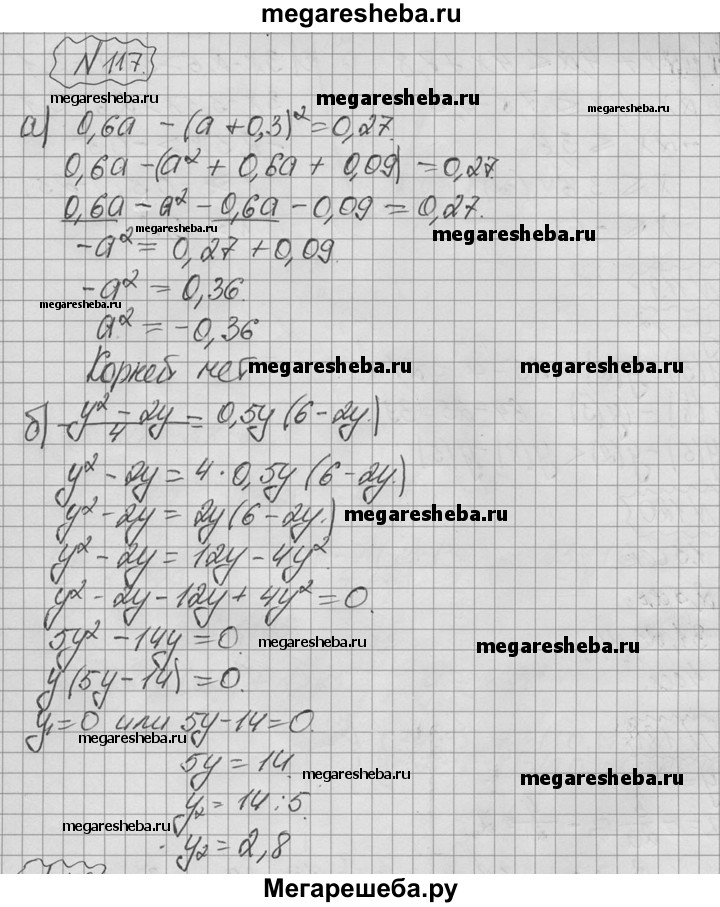 megaresheba.ru
N 117.
megaresheba.ru
megaresheba.ru
а) 0,6a - (a + 0,3)² = 0,27.
0,6a - (a² + 0,6a + 0,09) = 0,27.
0,6a - a² - 0,6a - 0,09 = 0,27.
megaresheba.ru
megaresheba.ru
-a² = 0,27 + 0,09.
-a² = 0,36.
megaresheba.ru
a² = -0,36
Корней нет
megaresheba.ru
megaresheba.ru
б) (y² - 2y)/4 = 0,5y (6 - 2y.)
y² - 2y = 4 · 0,5y (6 - 2y.)
y² - 2y = 2y (6 - 2y.)
megaresheba.ru
y² - 2y = 12y - 4y².
y² - 2y - 12y + 4y² = 0.
5y² - 14y = 0.
megaresheba.ru
megaresheba.ru
y (5y - 14) = 0.
y₁ = 0 или 5y - 14 = 0.
megaresheba.ru
5y = 14.
megaresheba.ru
megaresheba.ru
y₂ = 14 : 5.
megaresheba.ru
y₂ = 2,8
Мегарешеба.ру